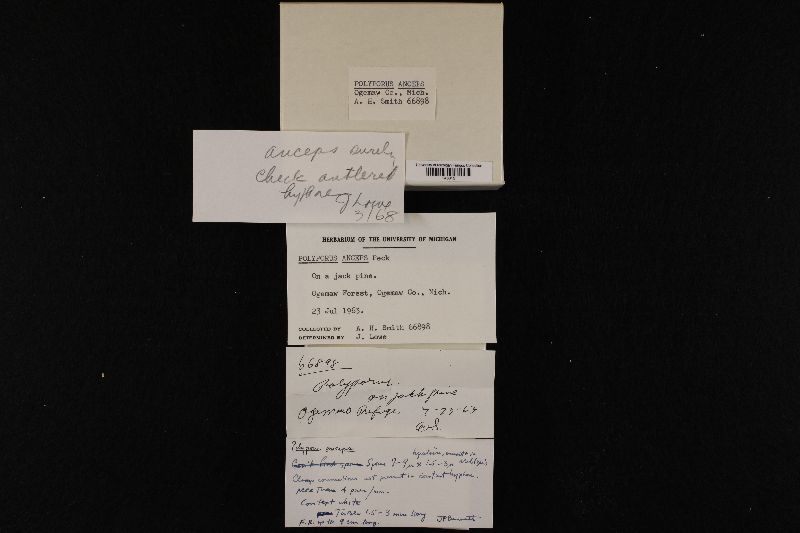 POLYPORUS ANCEPS
Ogemaw Co., Mich.
A. H. Smith 66898
anceps surely
check antlered
hyphae
J Lowe
3/68
HERBARIUM OF THE UNIVERSITY OF MICHIGAN
POLYPORUS ANCEPS Peck
On a jack pine.
Ogemaw Forest, Ogemaw Co., Mich.
23 Jul 1963.
COLLECTED BY A. H. Smith 66898
DETERMINED BY J. Lowe
66898
Polyporus.
on jack pine
Ogemaw Refuge. 7-23-63
Polyporus anceps
hyaline, smooth in
Spores 7-9µ x 2.5-3µ Melzer's
Clamp connections not present in context hyphae.
More than 4 pores/mm.
Context white
Tubes 1.5-3 mm long
F.B. up to 9 cm long.